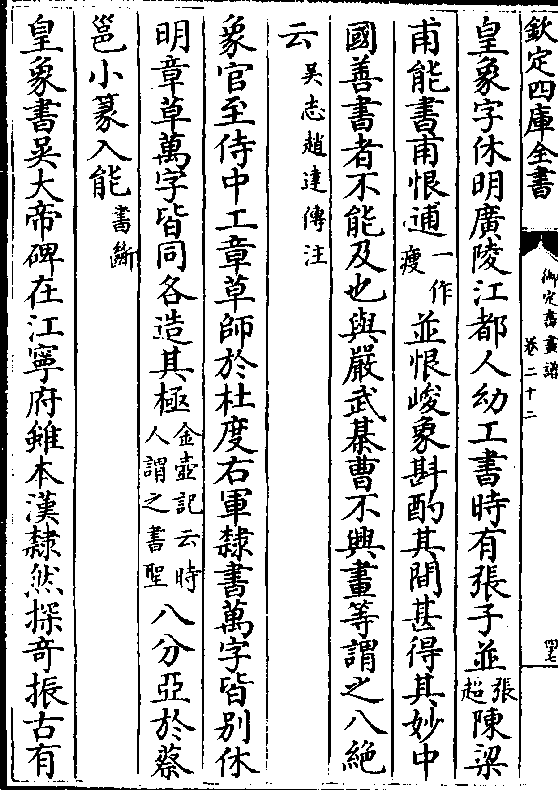 欽定四庫全書
御定書畫譜
卷二十二
四七
皇象字休明廣陵江都人幼工書時有張子並張超陳梁
甫能書甫恨逋一作瘦並恨峻象斟酌其間甚得其妙中
國善書者不能及也與嚴武棊曹不興畫等謂之八絶
云吳志趙達傳注
象官至侍中工章草師於杜度右軍隸書萬字皆別休
明章草萬字皆同各造其極金壺記云時人謂之書聖八分亞於蔡
邕小篆入能書斷
皇象書吳大帝碑在江寧府雖本漢隸然探奇振古有